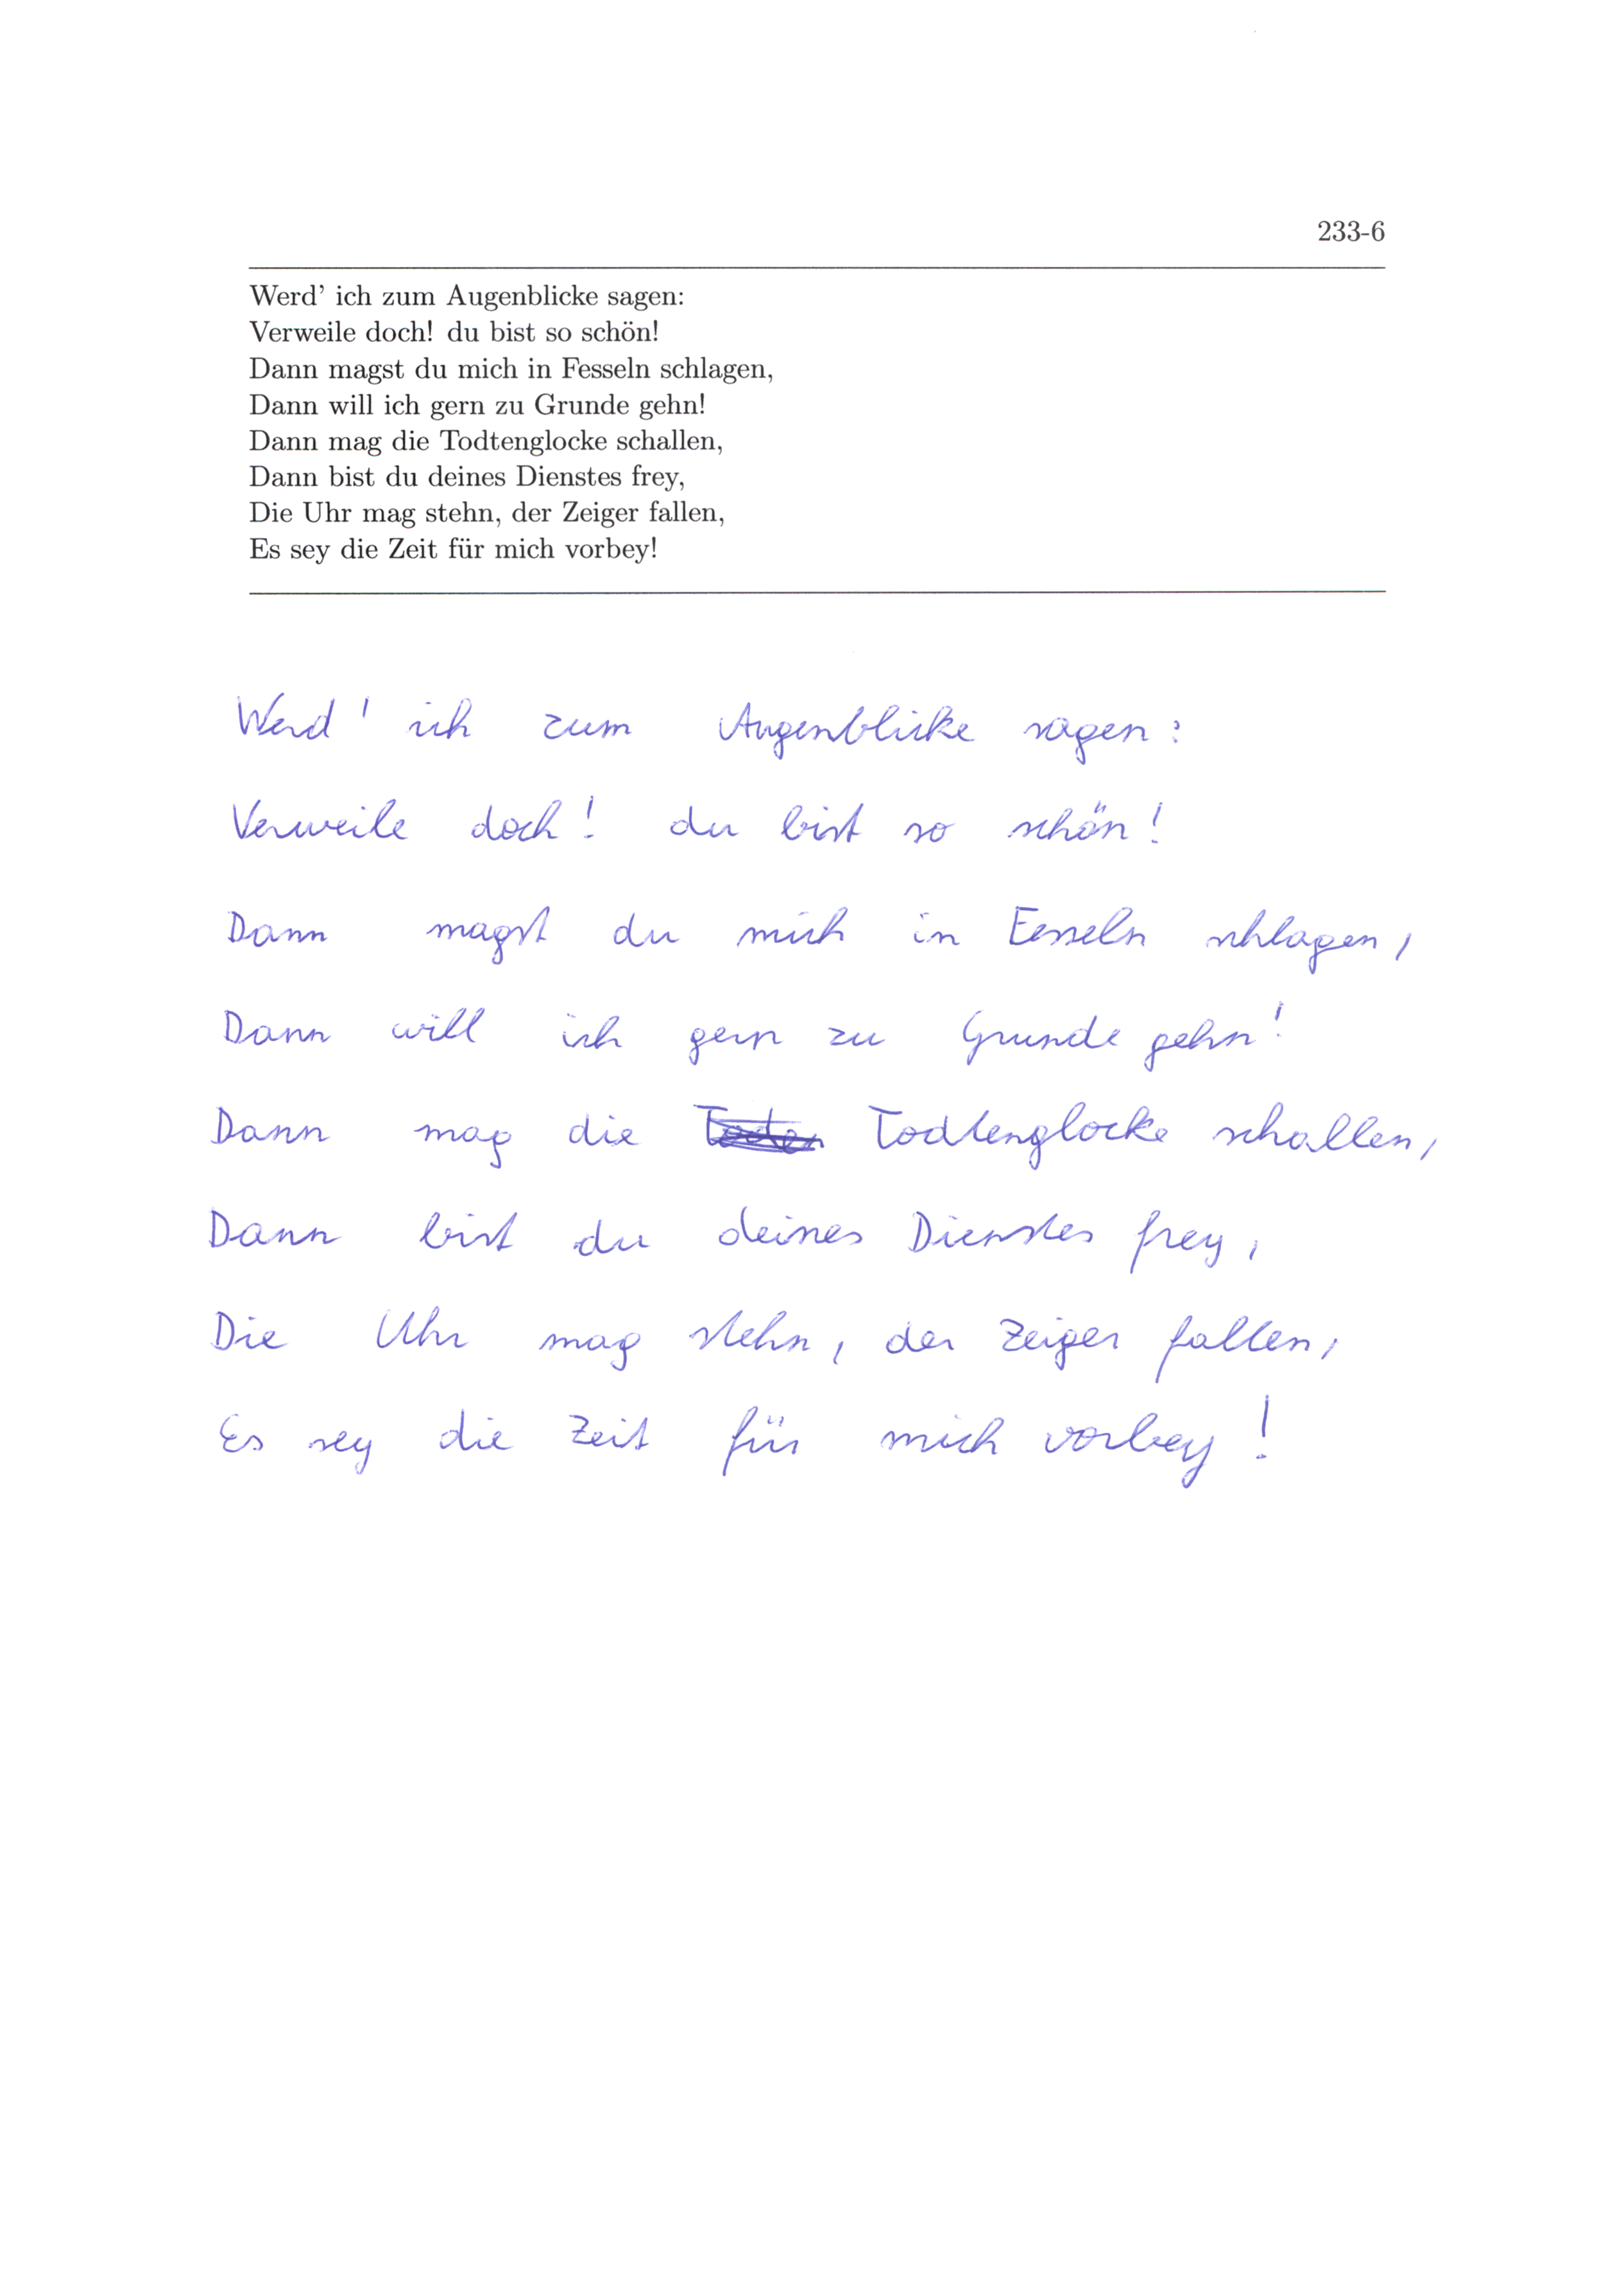 233-6
Werd' ich zum Augenblicke sagen:
Verweile doch! du bist so schön!
Dann magst du mich in Fesseln schlagen,
Dann will ich gern zu Grunde gehn!
Dann mag die Todtenglocke schallen,
Dann bist du deines Dienstes frey,
Die Uhr mag stehn, der Zeiger fallen,
Es sey die Zeit für mich vorbey!
Werd' ich zum Augenblicke sagen:
Verweile doch! du bist so schön!
Dann magst du mich in Fesseln schlagen,
Dann will ich gern zu Grunde gehn!
Dann mag die Todtenglocke schallen,
Dann bist du deines Dienstes frey,
Die Uhr mag stehn, der Zeiger fallen,
Es sey die Zeit für mich vorbey!